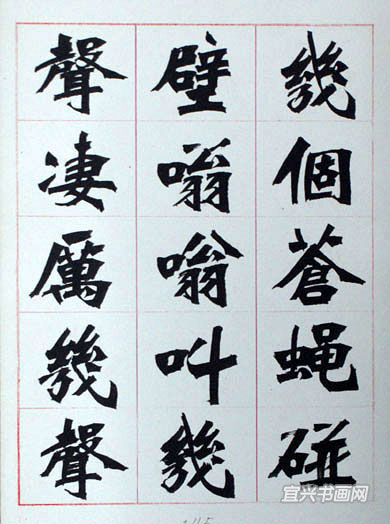 幾個蒼蝇碰
壁嗡嗡叫幾
聲凄厲幾聲
宜兴书画网